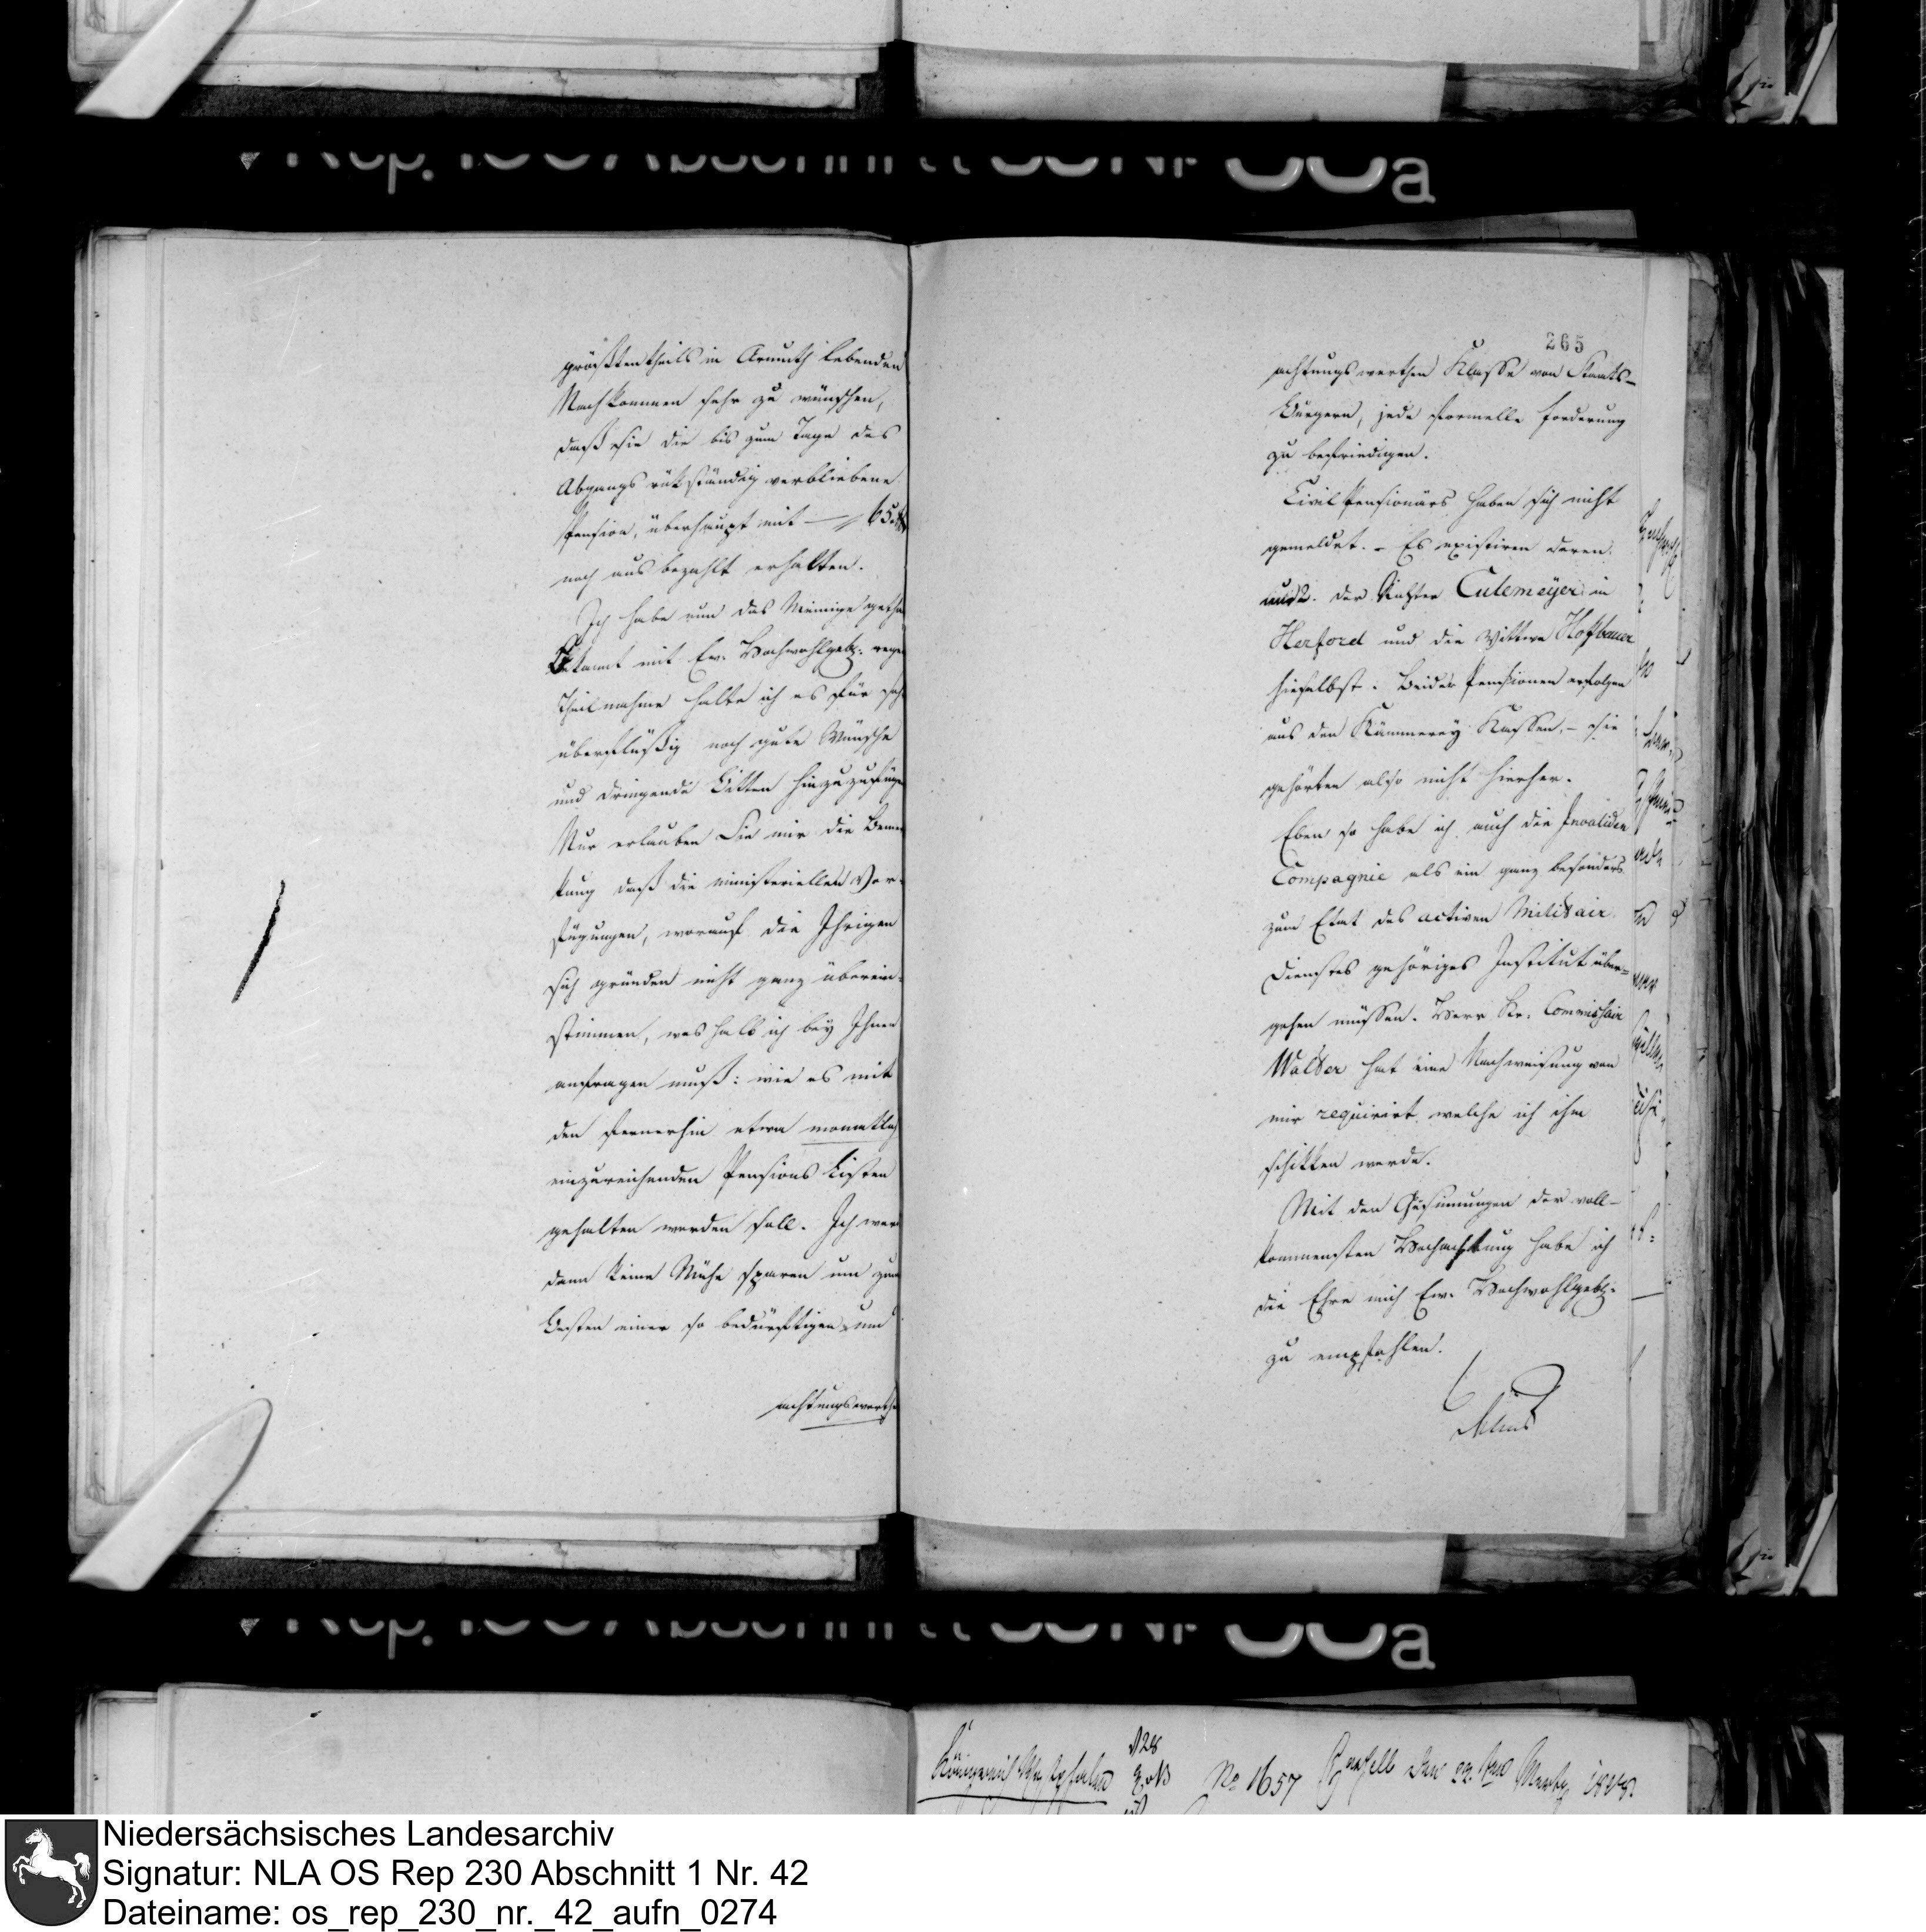 größtentheils in Armuth lebenden
Nachkommen sehr zu wünschen,
daß sie die bis zum Tage des
Abgangs rükständig verbliebene
Pension, überhaupt mit — 65
noch aus bezahlt erhalten.
Ich habe nun das Meinige gethan
Bekannt mit Ew. Hochwohlgeb. rege
Theilnahme halte ich es für sehr
überflüßig noch gute Wünsche
und dringende Bitten hinzuzufügen
Nur erlauben Sie mir die Bemer
kung daß die ministeriellen Ver-
fügungen, worauf die Ihrigen
sich gründen nicht ganz überein-
stimmen, weshalb ich bey Ihnen
anfragen muß: wie es mit
den fernerhin etwa monatlich
einzureichenden Pensions Listen
gehalten werden soll. Ich wer
dann keine Mühe sparen um zum
Besten einer so bedürftigen und
achtungswerthe
265
achtungswerthen Klasse von Staats-
Bürgern, jede formelle Forderung
zu befriedigen.
Civil Pensionärs haben sich nicht
gemeldet. - Es existiren deren
nur 2. der Richter Culemeyer in
Herford und die Wittwe Hoffbauer
hieselbst. Beider Pensionen erfolgen
aus den Kämmerey Kassen, - sie
gehörten also nicht hierher.
Eben so habe ich auch die Invaliden
Compagnie als ein ganz besonders
zum Etat des activen Militair
Dienstes gehöriges Institut über-
gehen müssen. Herr Kr. Commissair
Walter hat eine Nachweisung von
mir requirirt, welche ich ihm
schikken werde.
Mit den Gesinnungen der voll-
kommensten Hochachtung habe ich
die Ehre mich Ew. Hochwohlgeb.
zu empfehlen.
Delius
Königreich Westphalen
No 1657 Cassell den 22ten Martz 1808.
Niedersächsisches Landesarchiv
Signatur: NLA OS Rep 230 Abschnitt 1 Nr. 42
Dateiname: os_rep_230_nr._42_aufn_0274